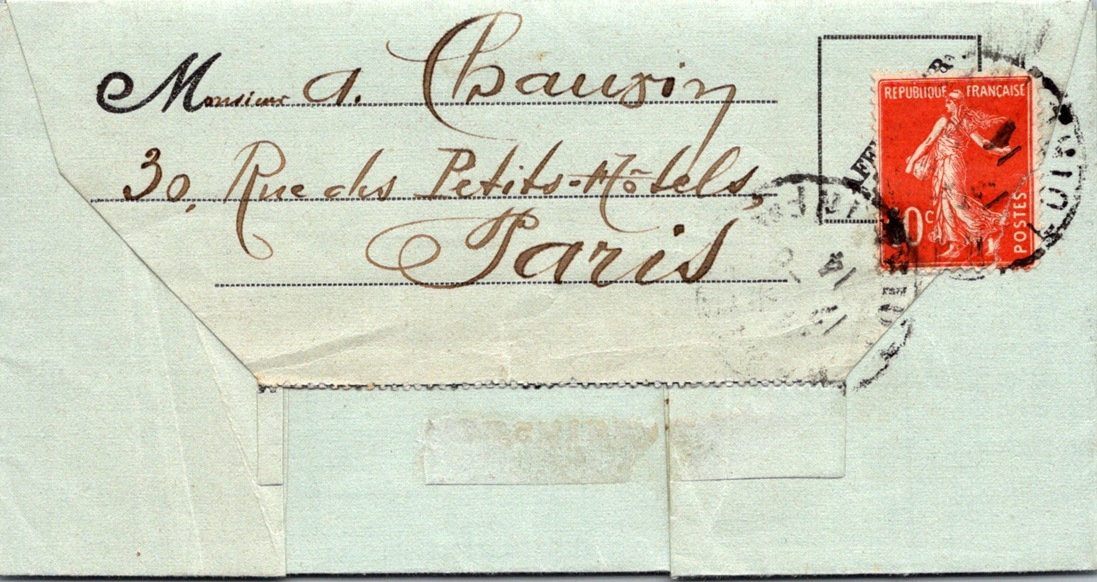 Monsieur A. Chauvin
30, Rue des Petits-Hôtels,
Paris
REPUBLIQUE FRANÇAISE
10c
POSTES